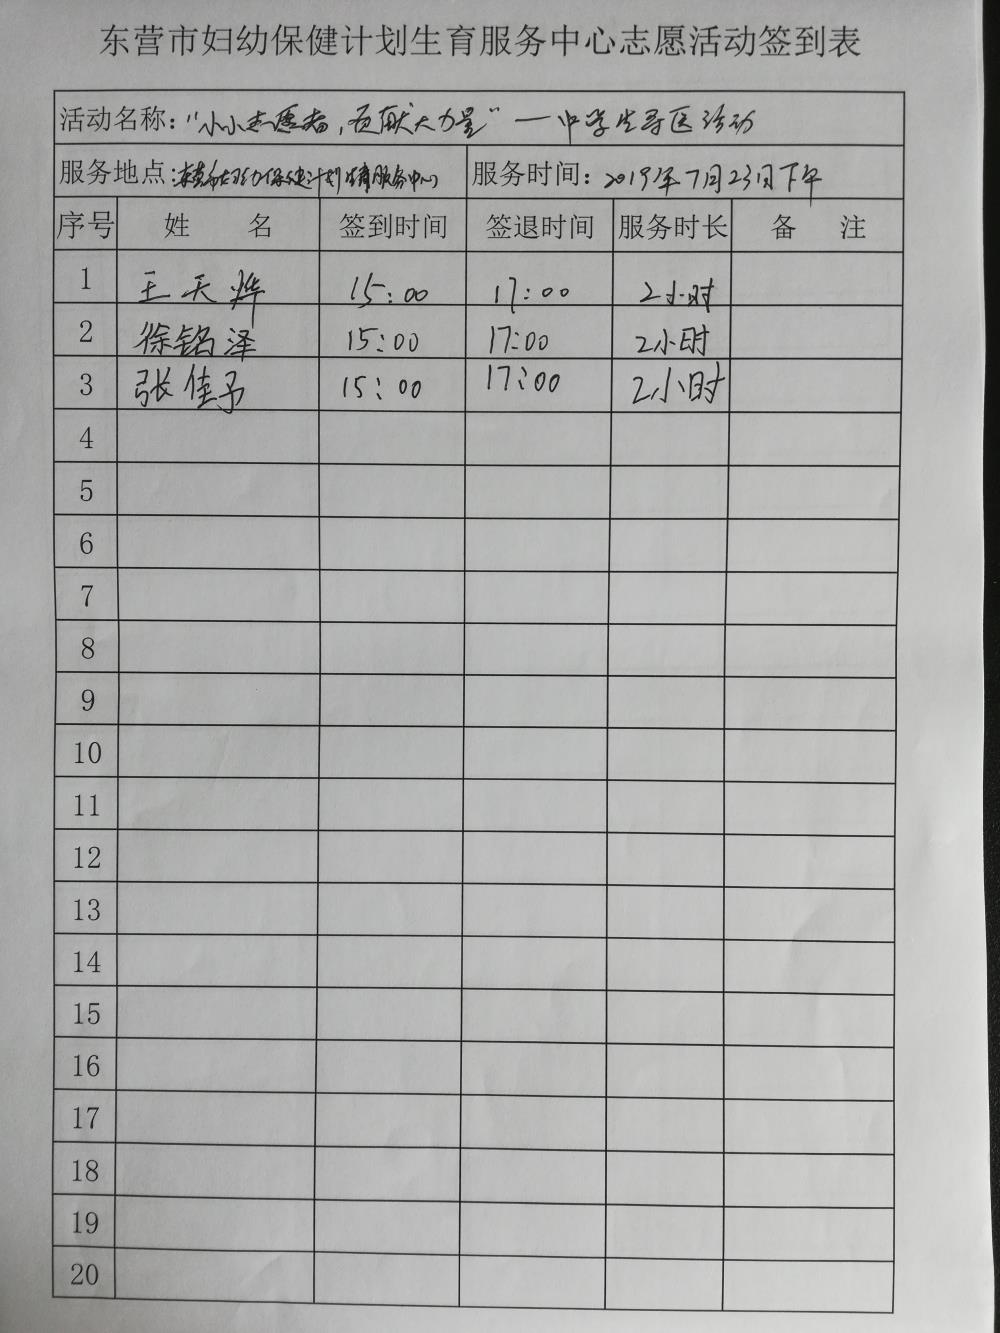 东营市妇幼保健计划生育服务中心志愿活动签到表
活动名称：“小小志愿者，贡献大力量”—中学生导医活动
服务地点：东营市妇幼保健计划生育服务中心 服务时间：2019年7月23日下午
序号 姓 名 签到时间 签退时间 服务时长 备 注
1 王天烨 15:00 17:00 2小时
2 徐铭泽 15:00 17:00 2小时
3 张佳予 15:00 17:00 2小时
4
5
6
7
8
9
10
11
12
13
14
15
16
17
18
19
20